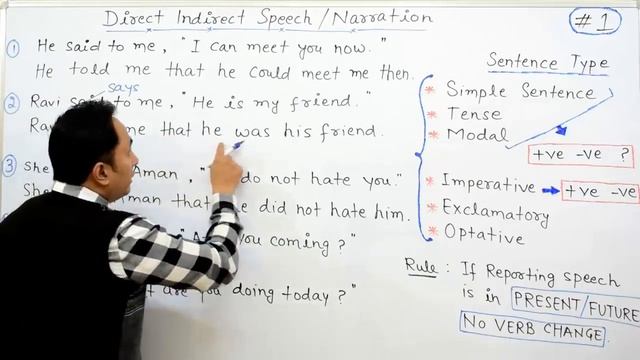 Direct Indirect Speech/Narration
#1
1 He said to me, "I can meet you now."
He told me that he could meet me then.
says
2 Ravi said to me, "He is my friend."
me that he was his friend.
3 She Aman, "I do not hate you."
She Aman that she did not hate him.
you coming?"
are you doing today?"
Sentence Type
* Simple Sentence
* Tense
* Modal
+ve -ve ?
* Imperative → +ve -ve
* Exclamatory
* Optative
Rule : If Reporting speech
is in PRESENT/FUTURE
NO VERB CHANGE.